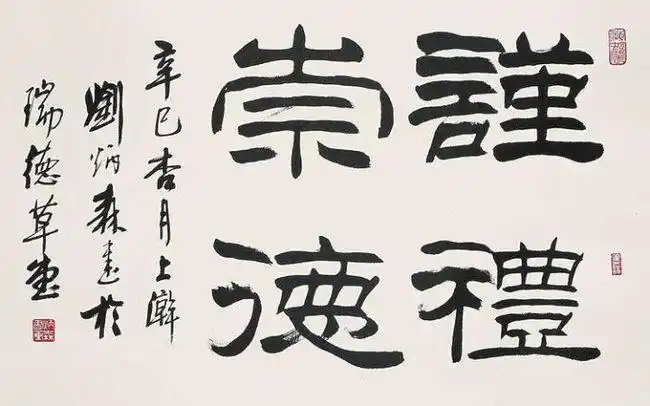 謹禮
崇德
辛巳杏月上澣
劉炳森書於
瑞德草堂